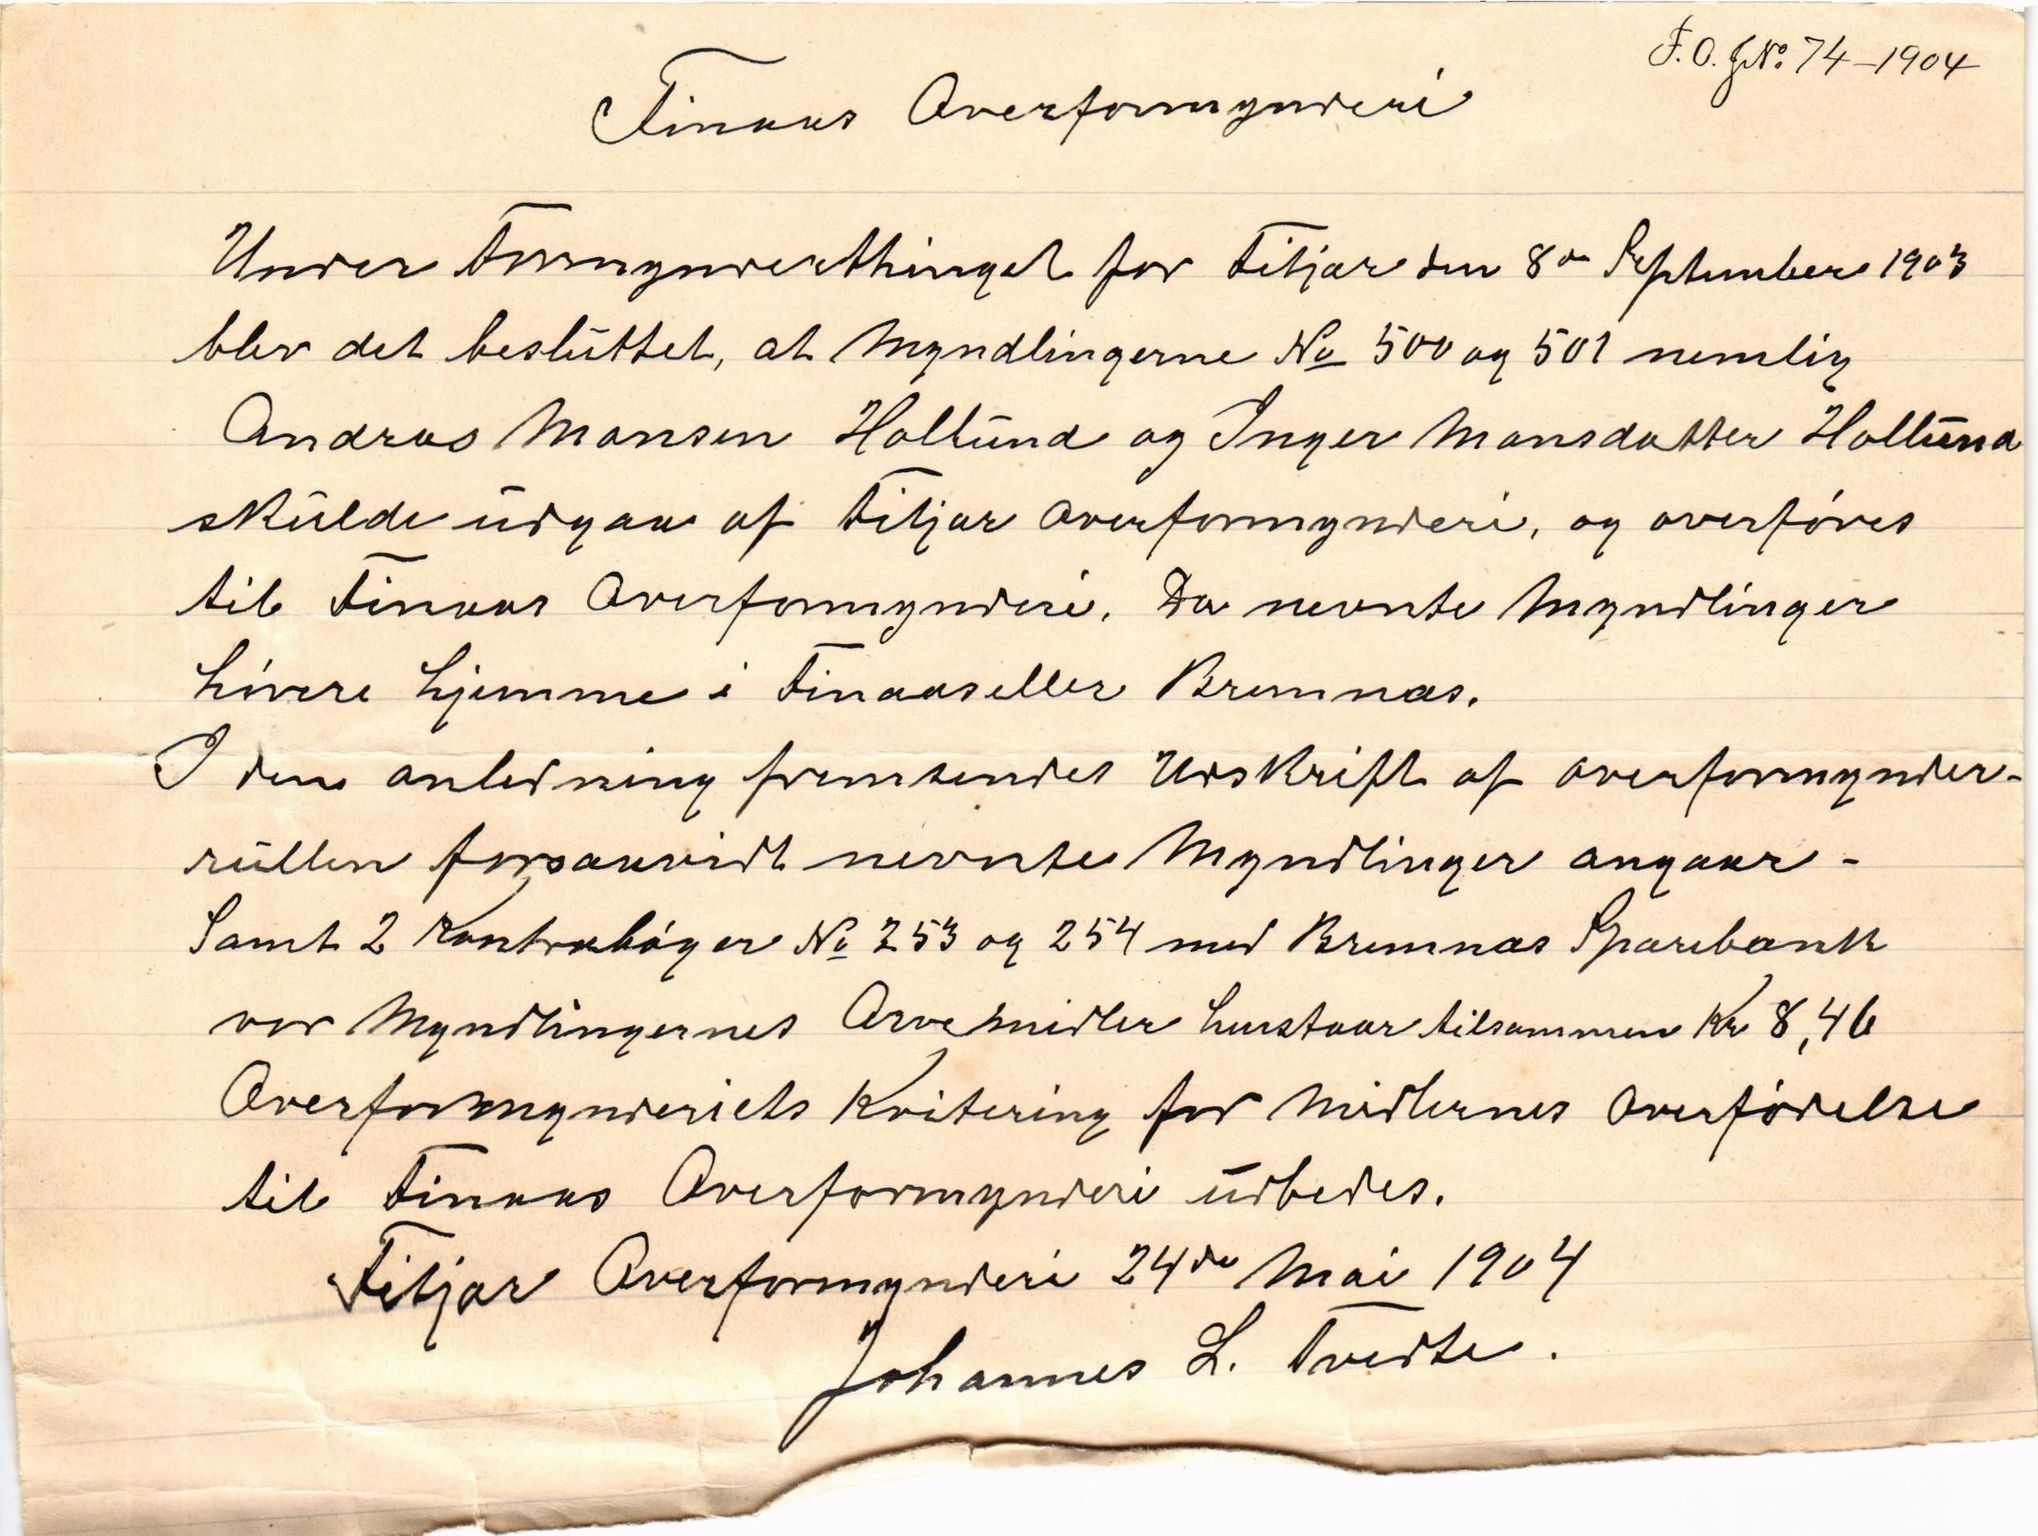 F. O. J№ 74-1904
Finaas Overformynderi
Under Formynderthinget for Fitjar den 8de September 1903
blev det besluttet, at Myndlingerne No 500 og 501 nemlig
Andras Monsen Hollund og Inger Monsdatter Hollund
skulde udgaa af Fitjar overformynderi, og overføres
til Finaas Overformynderi. Da nevnte Myndlinger
høvere hjemme i Finaas eller Bremnas.
I den anledning fremsendes Udskrift af overformynder-
rullen forsaavidt nevnte Myndlinger angaar -
Samt 2 Kontrabøger No 253 og 254 med Bremnas Sparebank
vor Myndlingernes Arvemidler henstaar tilsammen Kr 8,46
Overformynderiets Kvitering for Midlernes overførelse
til Finaas Overformynderi udbedes.
Fitjar Overformynderi 24de Mai 1904
Johannes L. Tvedte.